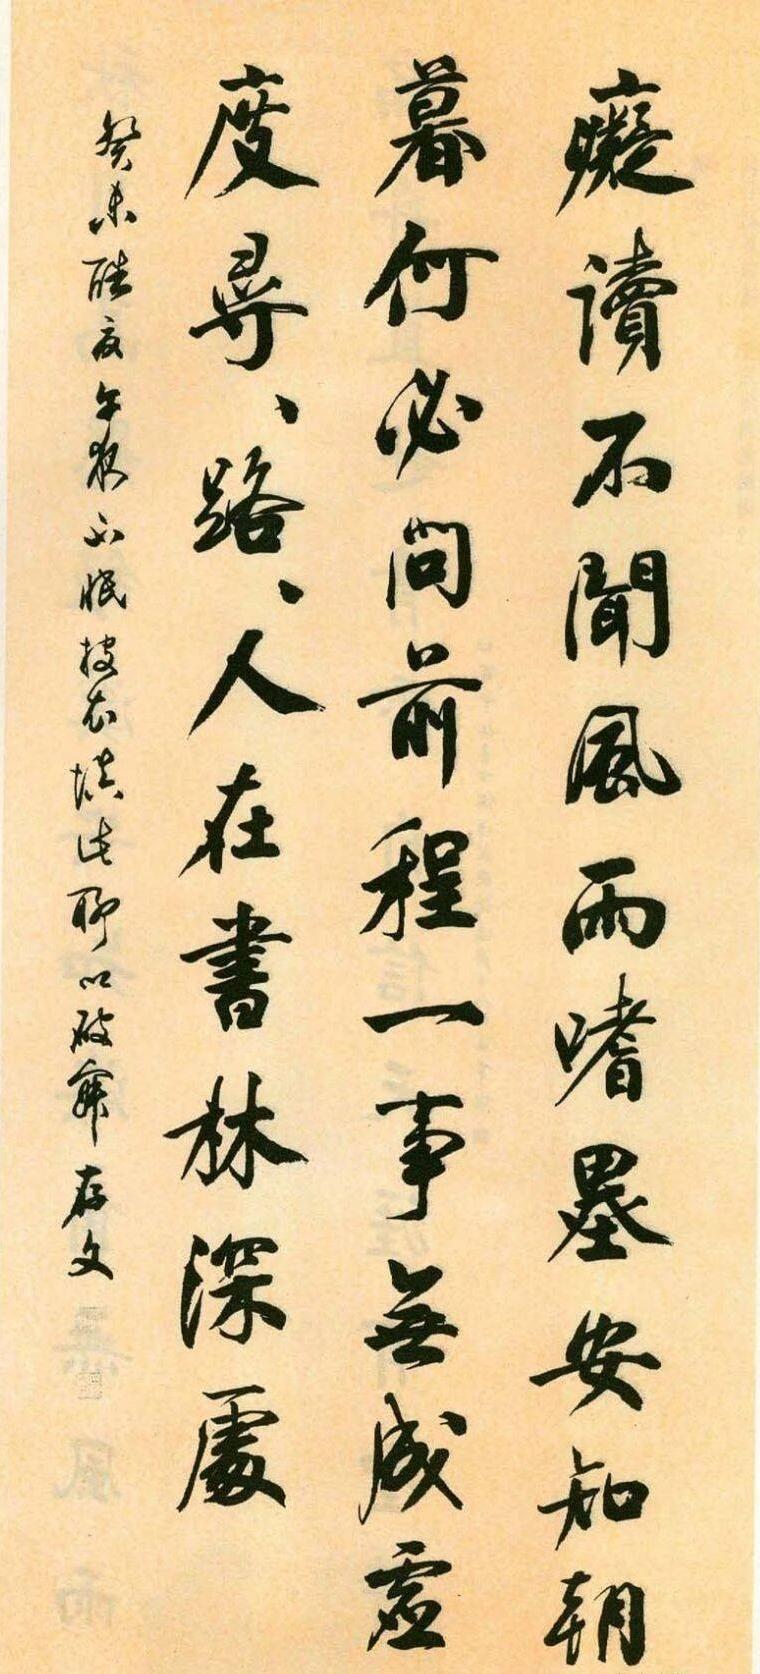 癡讀不聞風雨嗜墨安知朝
暮何必問前程一事無成虛
度尋、路、人在書林深處
癸未酷夏午夜不眠披衣填此聊以破寐存文